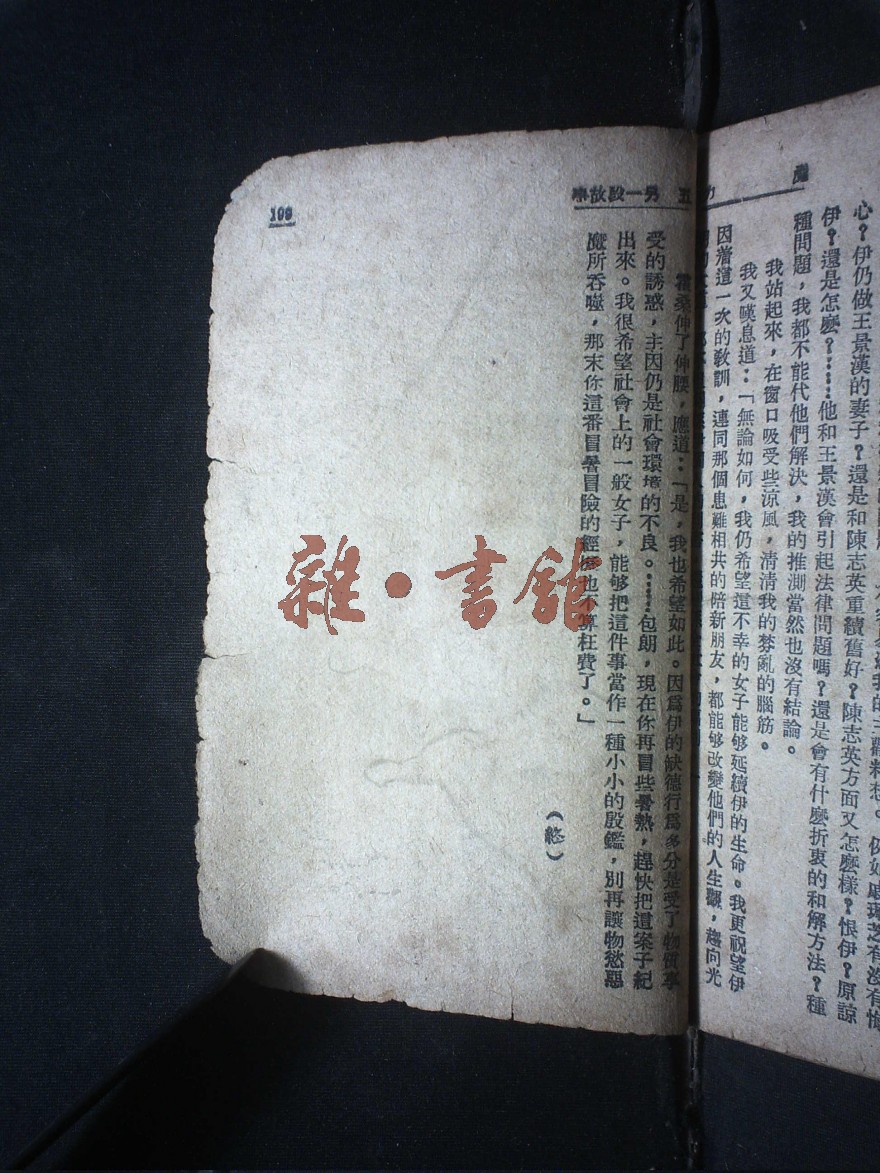 心？伊仍做王景漢的妻子？還是和陳志英重續舊好？陳志英方面又怎麼樣？恨伊？原諒
伊？還是怎麼？……他和王景漢會引起法律問題嗎？還是會有什麼折衷的和解方法？種
種問題，我都不能代他們解決，我的推測當然也沒有結論。
我站起來，在窗口吸受些涼風，清清我的棼亂的腦筋。
我又嘆息道：「無論如何，我仍希望這不幸的女子能够延續伊的生命。我更祝望伊
因着這一次的敎訓，連同那個患難相共的陪新朋友，都能够改變他們的人生觀，趨向光
五 另一段故事
霍桑伸了伸腰，應道：「是，我也希望如此。因爲伊的缺德行爲多分是受了物質享
受的誘惑，主因仍是社會環境的不良。……包朗，現在你再冒些暑熱，趕快把這案子紀
出來。我很希望社會上的一般女子，能够把這件事當作一種小小的殷鑑，別再讓物慾惡
魔所吞噬，那末你這番冒暑冒險的經也不算枉費了。」
（終）
109
雜·書館